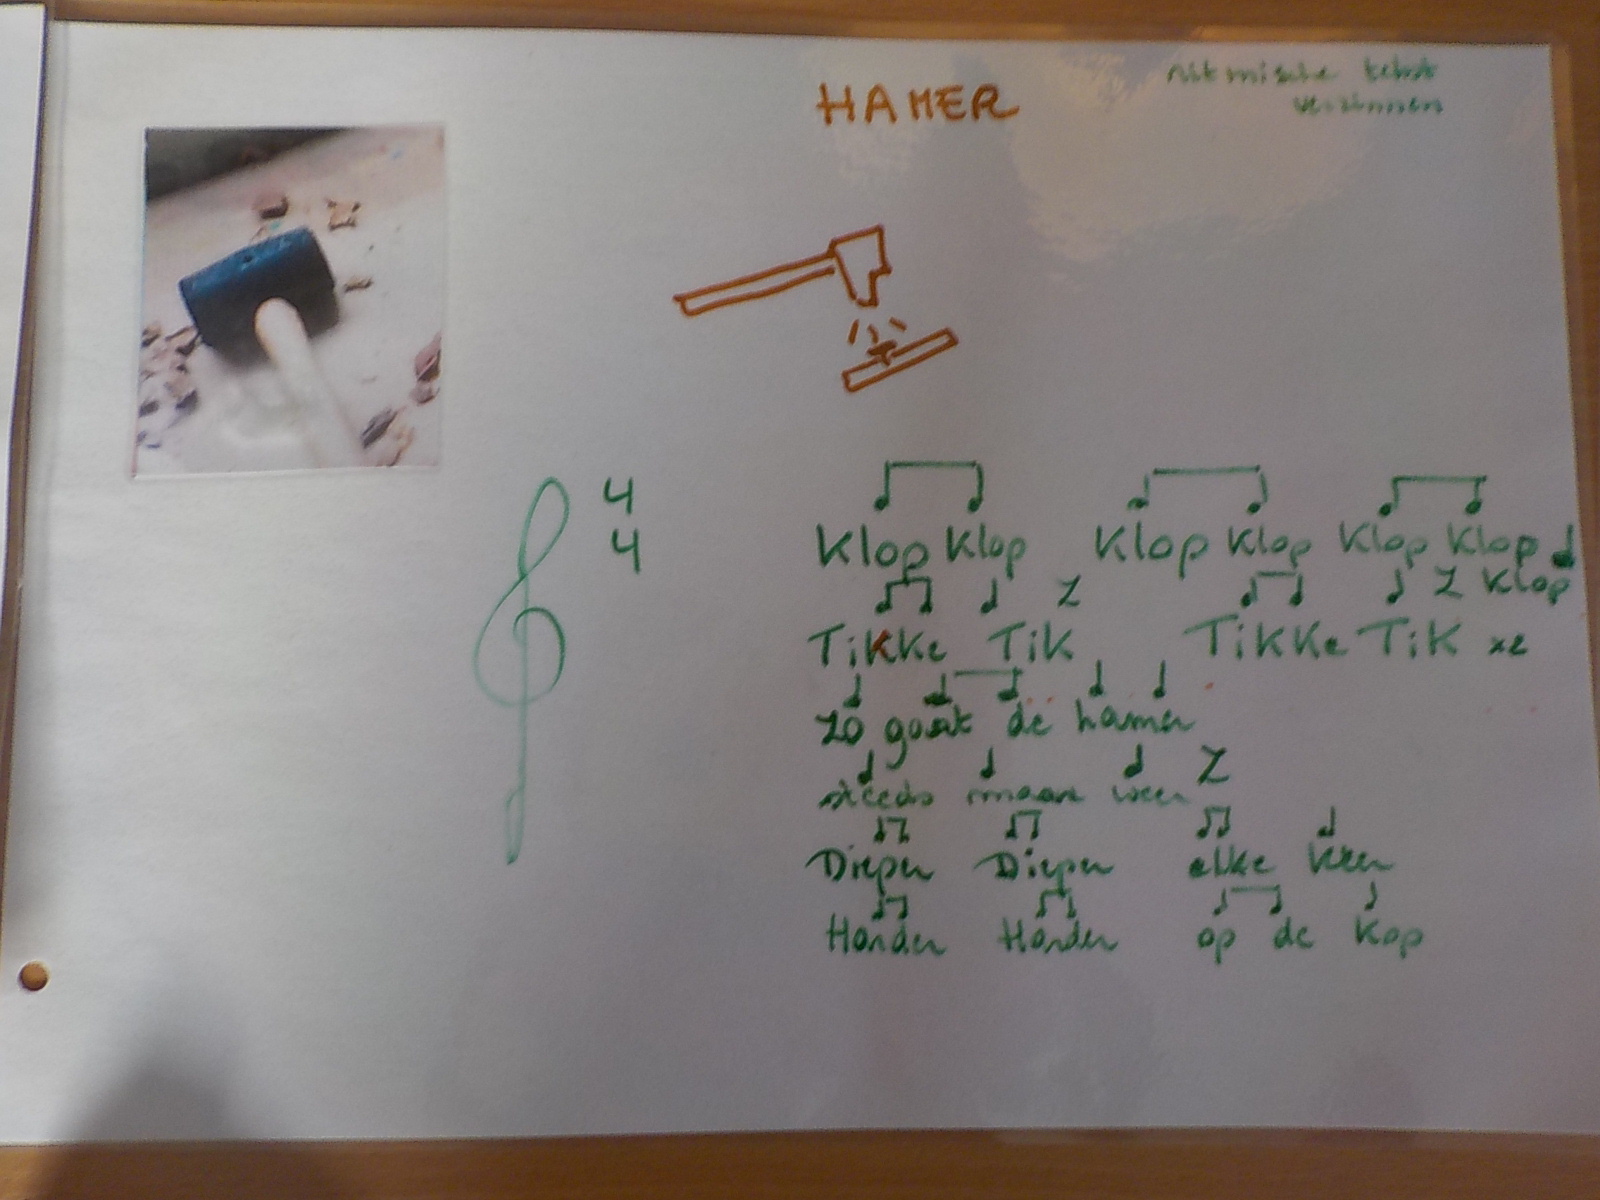 HAMER
ritmische tekst
verzinnen
4
4
Klop Klop Klop Klop Klop Klop
Klop
TiKKe TiK TiKKe TiK x2
Zo gaat de hamer
steeds maar weer
Dieper Dieper elke keer
Harder Harder op de kop